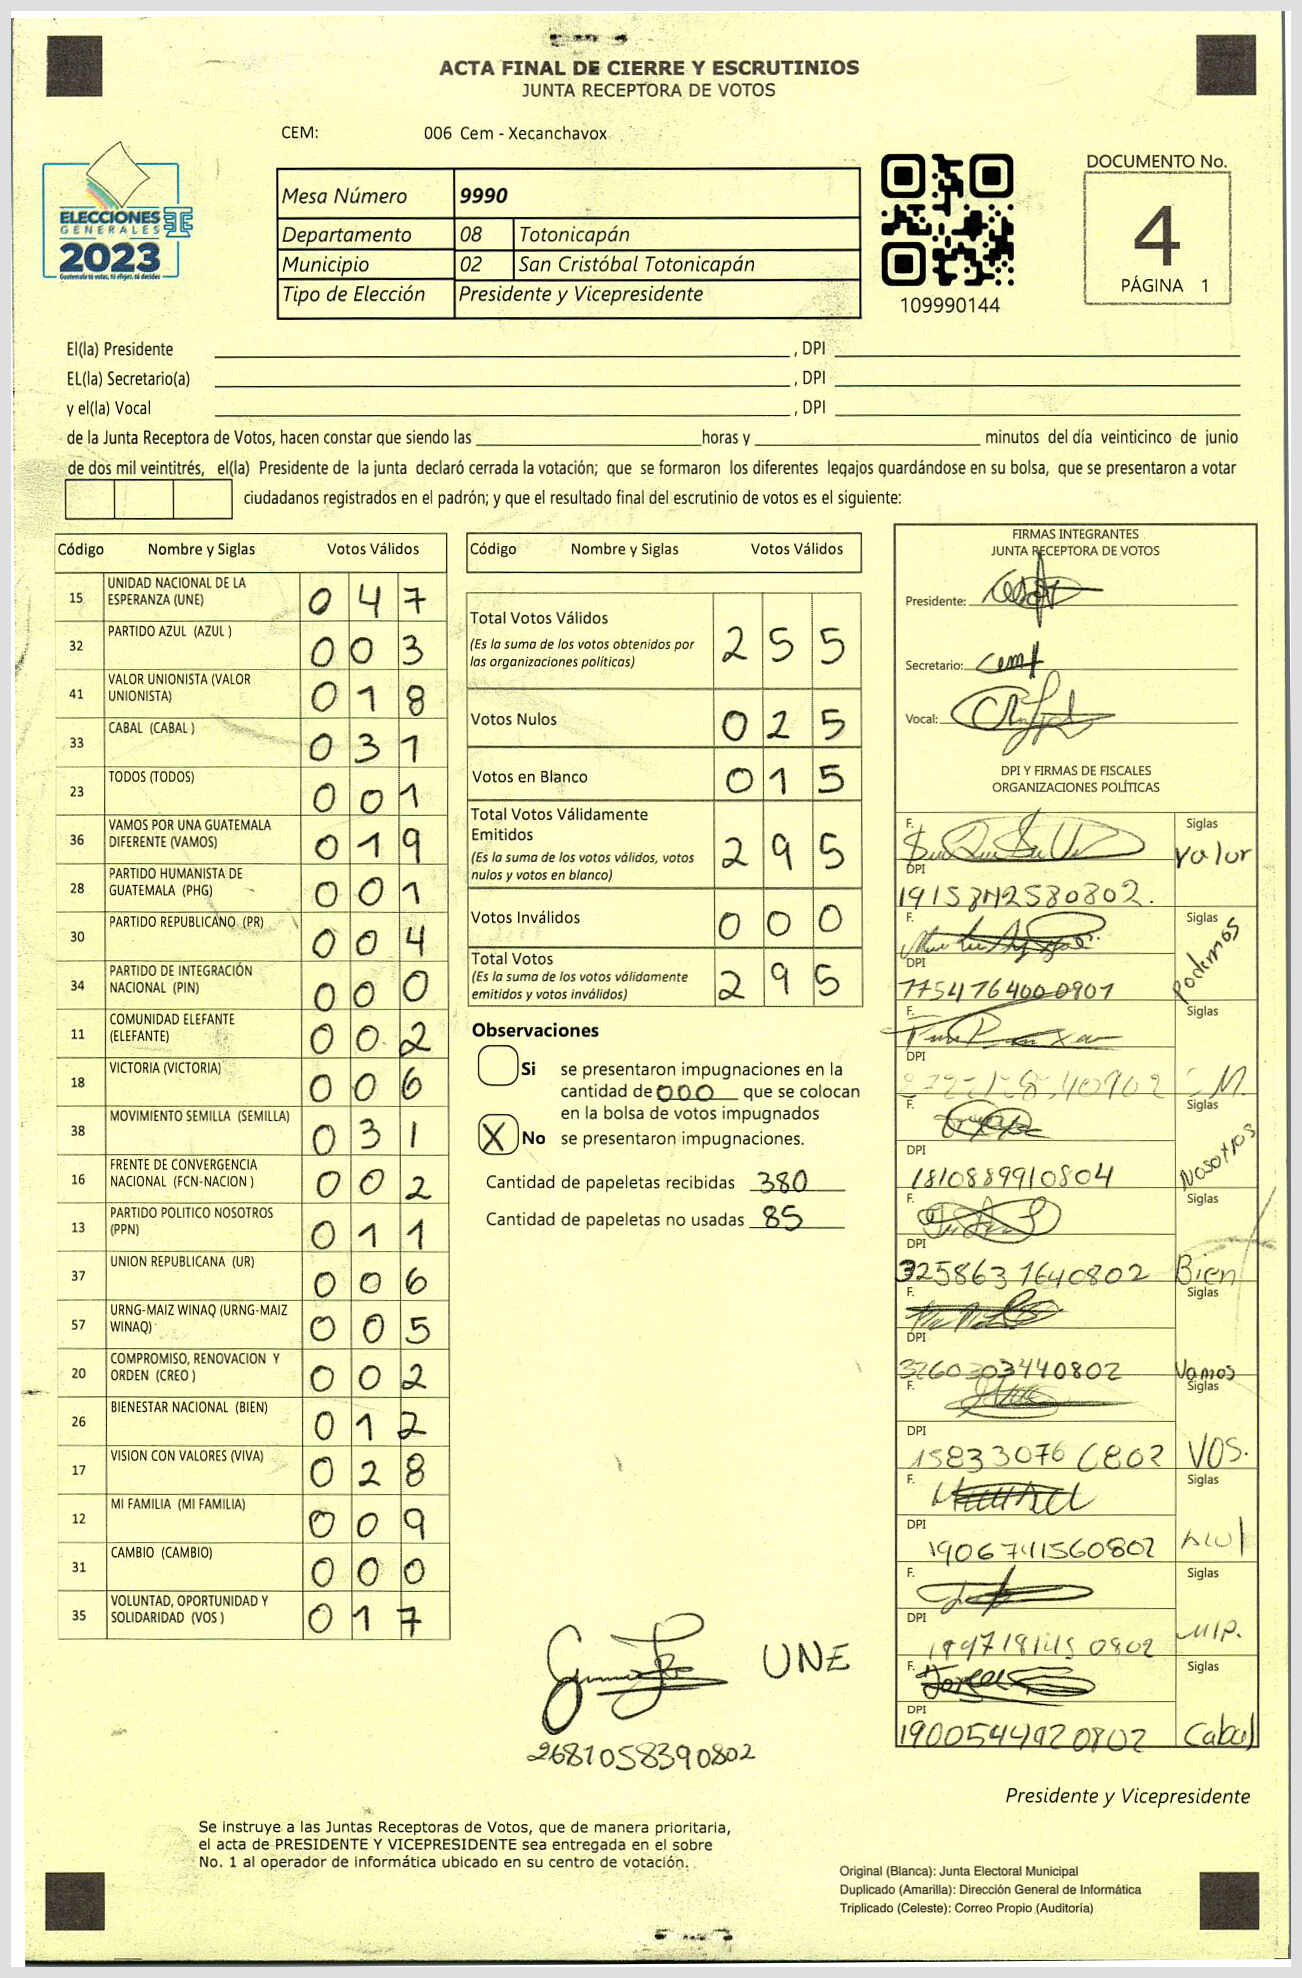 ACTA FINAL DE CIERRE Y ESCRUTINIOS
JUNTA RECEPTORA DE VOTOS
CEM: 006 Cem - Xecanchavox
ELECCIONES
GENERALES
2023
Guatemala tú votas, tú eliges, tú decides
Mesa Número 9990
Departamento 08 Totonicapán
Municipio 02 San Cristóbal Totonicapán
Tipo de Elección Presidente y Vicepresidente
109990144
DOCUMENTO No.
4
PÁGINA 1
El(la) Presidente , DPI
EL(la) Secretario(a) , DPI
y el(la) Vocal , DPI
de la Junta Receptora de Votos, hacen constar que siendo las horas y minutos del día veinticinco de junio
de dos mil veintitrés, el(la) Presidente de la junta declaró cerrada la votación; que se formaron los diferentes legajos guardándose en su bolsa, que se presentaron a votar
ciudadanos registrados en el padrón; y que el resultado final del escrutinio de votos es el siguiente:
Código Nombre y Siglas Votos Válidos
15 UNIDAD NACIONAL DE LA ESPERANZA (UNE) 047
32 PARTIDO AZUL (AZUL ) 003
41 VALOR UNIONISTA (VALOR UNIONISTA) 018
33 CABAL (CABAL ) 031
23 TODOS (TODOS) 001
36 VAMOS POR UNA GUATEMALA DIFERENTE (VAMOS) 019
28 PARTIDO HUMANISTA DE GUATEMALA (PHG) 001
30 PARTIDO REPUBLICANO (PR) 004
34 PARTIDO DE INTEGRACIÓN NACIONAL (PIN) 000
11 COMUNIDAD ELEFANTE (ELEFANTE) 002
18 VICTORIA (VICTORIA) 006
38 MOVIMIENTO SEMILLA (SEMILLA) 031
16 FRENTE DE CONVERGENCIA NACIONAL (FCN-NACION ) 002
13 PARTIDO POLITICO NOSOTROS (PPN) 011
37 UNION REPUBLICANA (UR) 006
57 URNG-MAIZ WINAQ (URNG-MAIZ WINAQ) 005
20 COMPROMISO, RENOVACION Y ORDEN (CREO ) 002
26 BIENESTAR NACIONAL (BIEN) 012
17 VISION CON VALORES (VIVA) 028
12 MI FAMILIA (MI FAMILIA) 009
31 CAMBIO (CAMBIO) 000
35 VOLUNTAD, OPORTUNIDAD Y SOLIDARIDAD (VOS ) 017
Código Nombre y Siglas Votos Válidos
Total Votos Válidos 255
(Es la suma de los votos obtenidos por
las organizaciones políticas)
Votos Nulos 025
Votos en Blanco 015
Total Votos Válidamente
Emitidos 295
(Es la suma de los votos válidos, votos
nulos y votos en blanco)
Votos Inválidos 000
Total Votos 295
(Es la suma de los votos válidamente
emitidos y votos inválidos)
Observaciones
Si se presentaron impugnaciones en la
cantidad de 000 que se colocan
en la bolsa de votos impugnados
X No se presentaron impugnaciones.
Cantidad de papeletas recibidas 380
Cantidad de papeletas no usadas 85
UNE
2681058390802
FIRMAS INTEGRANTES
JUNTA RECEPTORA DE VOTOS
Presidente:
Secretario:
Vocal:
DPI Y FIRMAS DE FISCALES
ORGANIZACIONES POLÍTICAS
F. Siglas
Valor
DPI
F. Siglas
Podemos
DPI
1754764000901
F. Siglas
DPI
F. Siglas
Nosotros
DPI
1810889910804
F. Siglas
DPI
3258631640802 Bien
F. Siglas
DPI
3260303440802 Vamos
F. Siglas
DPI
VOS.
F. Siglas
DPI
1906741560802
F. Siglas
DPI
F. Siglas
DPI
1900544920802 Cabal
Presidente y Vicepresidente
Se instruye a las Juntas Receptoras de Votos, que de manera prioritaria,
el acta de PRESIDENTE Y VICEPRESIDENTE sea entregada en el sobre
No. 1 al operador de informática ubicado en su centro de votación.
Original (Blanca): Junta Electoral Municipal
Duplicado (Amarilla): Dirección General de Informática
Triplicado (Celeste): Correo Propio (Auditoría)